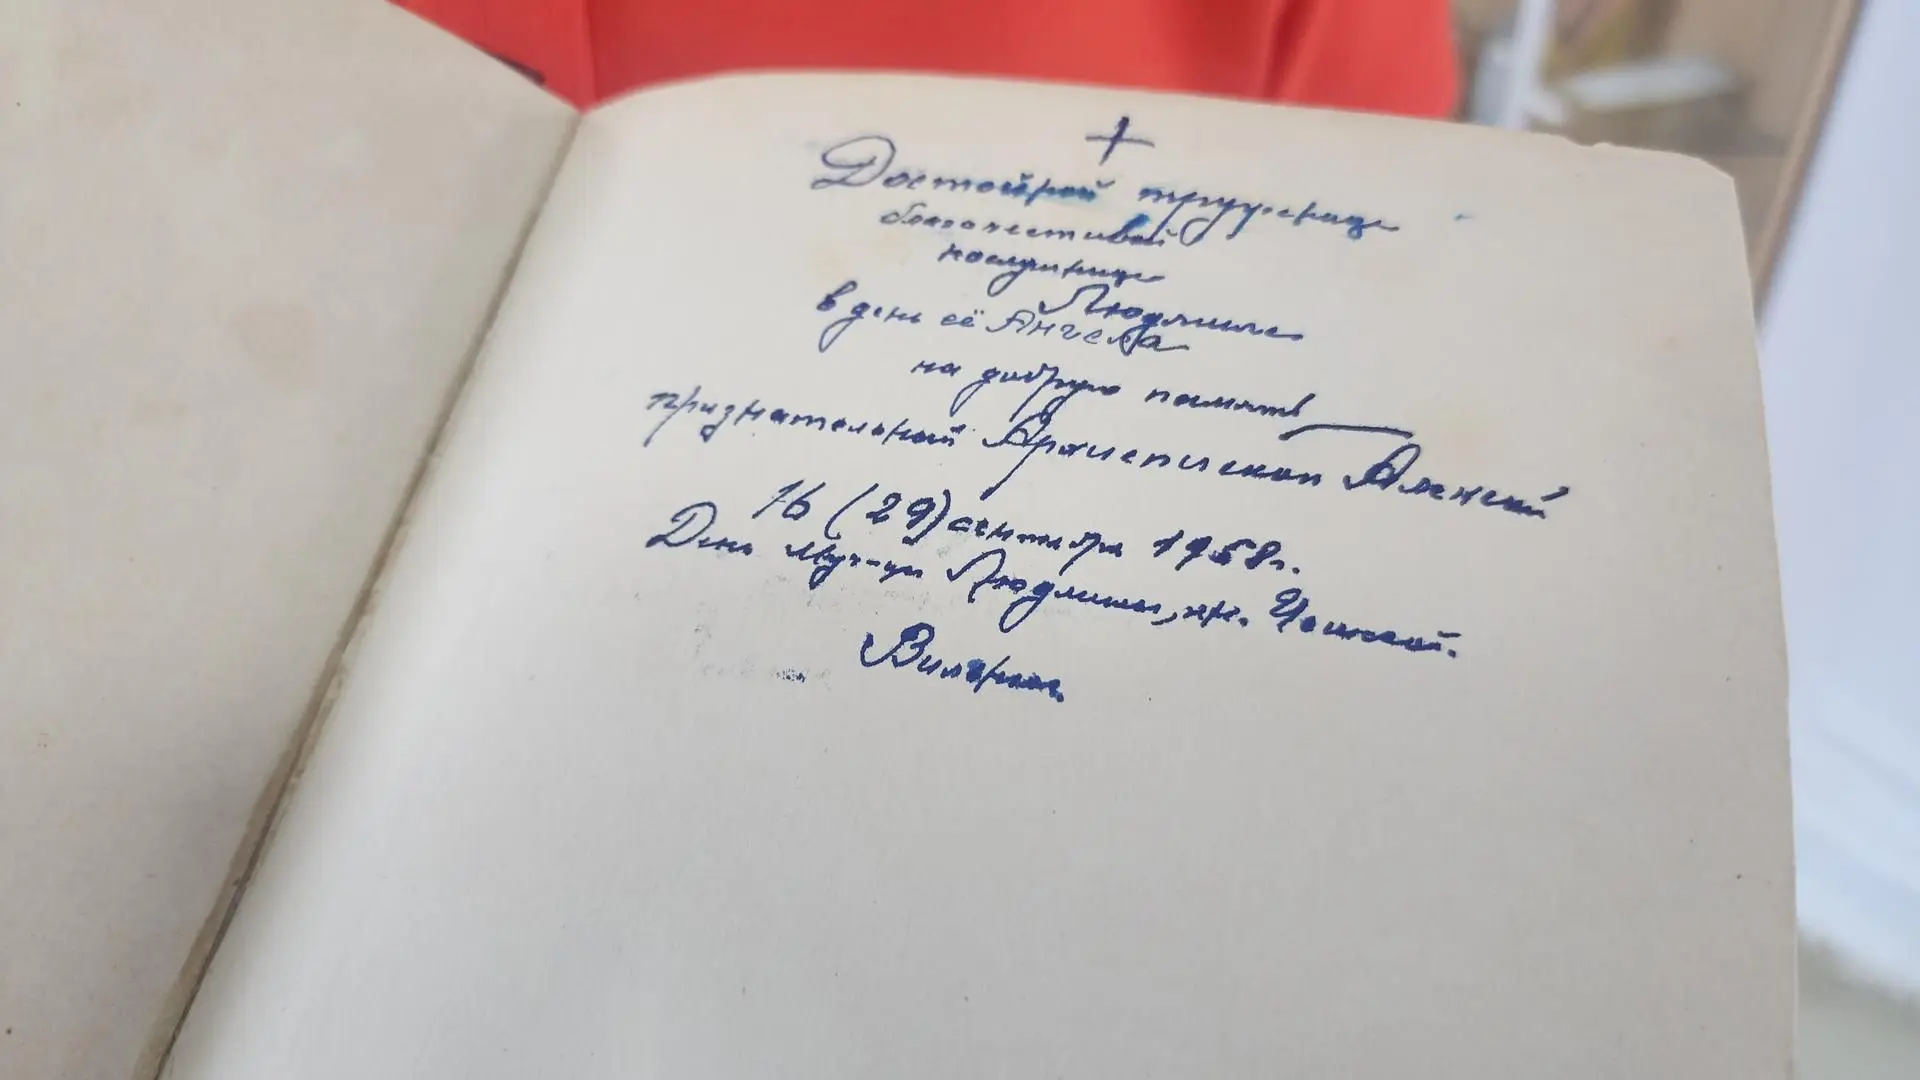 +
Достойной труженице
благочестивой
послушнице
Людмиле
в день её Ангела
на добрую память
признательный Архиепископ Алексий
16 (29) сентября 1958г.
День Муч-цы Людмилы, кн. Чешской.
Вильнюс.